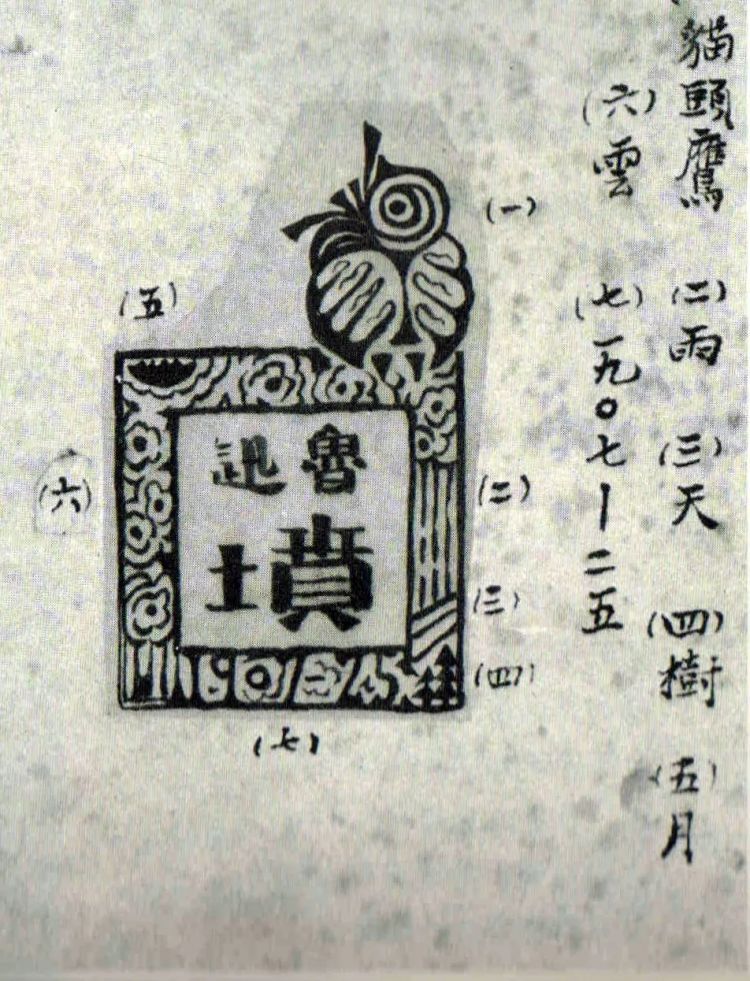 貓頭鷹 (二)雨 (三)天 (四)樹 (五)月
(六)雲 (七)一九〇七｜二五
(一)
(五)
魯迅
墳
(六)
(二)
(三)
(四)
(七)